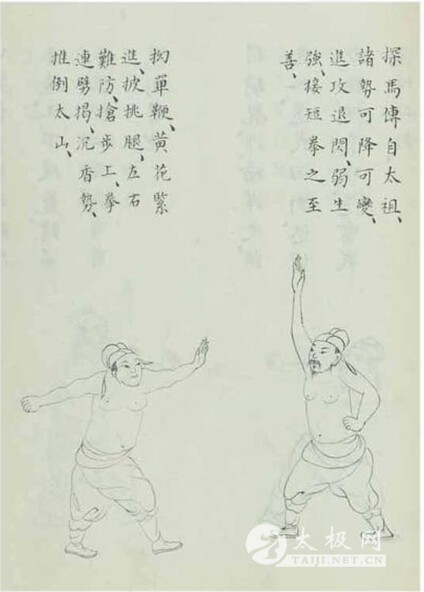 探馬傳自太祖、
諸勢可降可變、
進攻退閃、弱生
強、接短拳之至
善、
拗單鞭、黃花緊
進、披挑腿、左右
難防、搶步上、拳
連劈揭、沉香勢、
推倒太山、
太极网
TAIJI.NET.CN